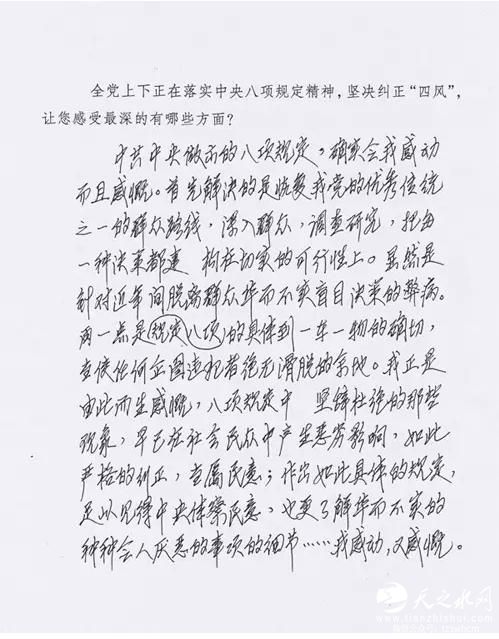 全党上下正在落实中央八项规定精神，坚决纠正“四风”，
让您感受最深的有哪些方面？
中共中央做示的八项规定，确实会我感动
而且感慨。首先解决的是恢复我党的优秀传统
之一的群众路线，深入群众，调查研究，把每
一种决策都建 构在切实的可行性上。虽然是
针对近年间脱离群众华而不实盲目决策的弊病。
两一点是规定八项的具体到一车一物的确切，
查使任何企图违犯者绝无滑脱的余地。我正是
由此而生感慨，八项规定中 坚锋杜绝的那些
现象，早已在社会民众中产生恶劣影响，如此
严格的纠正，当属民意；作出如此具体的规定，
足以见得中央体察民意，也更了解华而不实的
种种令人厌恶的事项的细节……我感动，又感慨。
天之水网
www.tianzhishui.com
微信公众号：tzswhcm